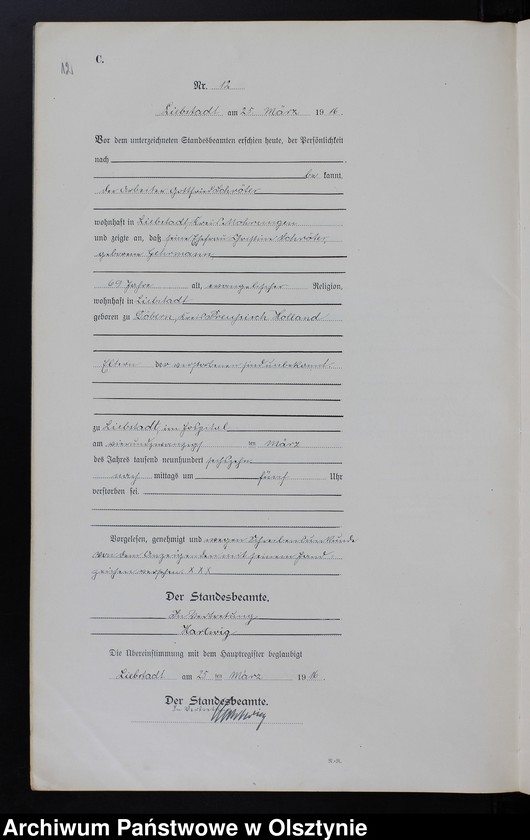 12
C.
Nr. 12
Liebstadt am 25 März 1916.
Vor dem unterzeichneten Standesbeamten erschien heute, der Persönlichkeit
nach
be kannt
der Arbeiter Gottfried Schröter
wohnhaft in Liebstadt Kreis Mohrungen
und zeigte an, daß seine Ehefrau Christine Schröter,
geborene Gehrmann
69 Jahre alt, evangelischer Religion,
wohnhaft in Liebstadt
geboren zu Döbern, Kreis Preußisch Holland
Eltern der verstorbenen sind unbekannt
zu Liebstadt, im Hospital
am vierundzwanzigst en März
des Jahres tausend neunhundert sechszehn
nach mittags um fünf Uhr
verstorben sei.
Vorgelesen, genehmigt und wegen Schreibensunkunde
von dem Anzeigenden mit seinem Hand
zeichen versehen X X X
Der Standesbeamte.
In Vertretung
Hartwig
Die Übereinstimmung mit dem Hauptregister beglaubigt
Liebstadt am 25 ten März 1916.
Der Standesbeamte.
In Vertretung
Hartwig
Archiwum Państwowe w Olsztynie